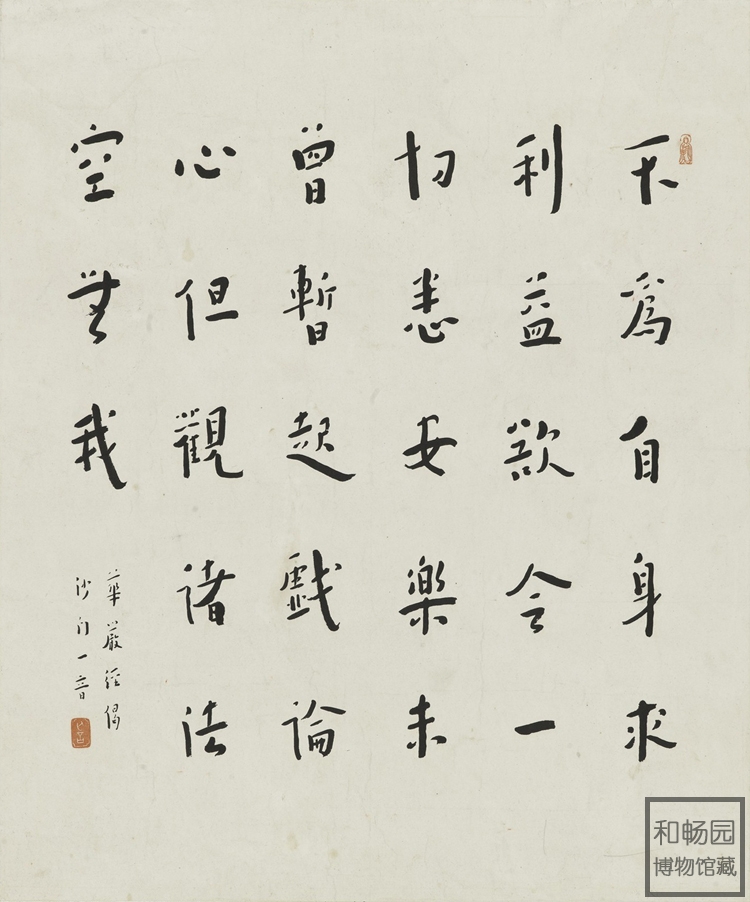 不爲自身求
利益欲令一
切悉安樂未
曾暫起戲論
心但觀諸法
空無我
華嚴經偈
沙門一音
和畅园
博物馆藏